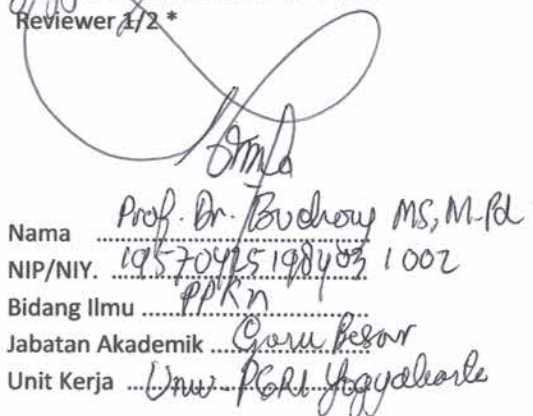 Reviewer 1/2 *
Nama Prof. Dr. Buchory MS, M.Pd
NIP/NIY. 19570425198403 1 002
Bidang Ilmu PPKn
Jabatan Akademik Guru Besar
Unit Kerja Univ. PGRI Yogyakarta